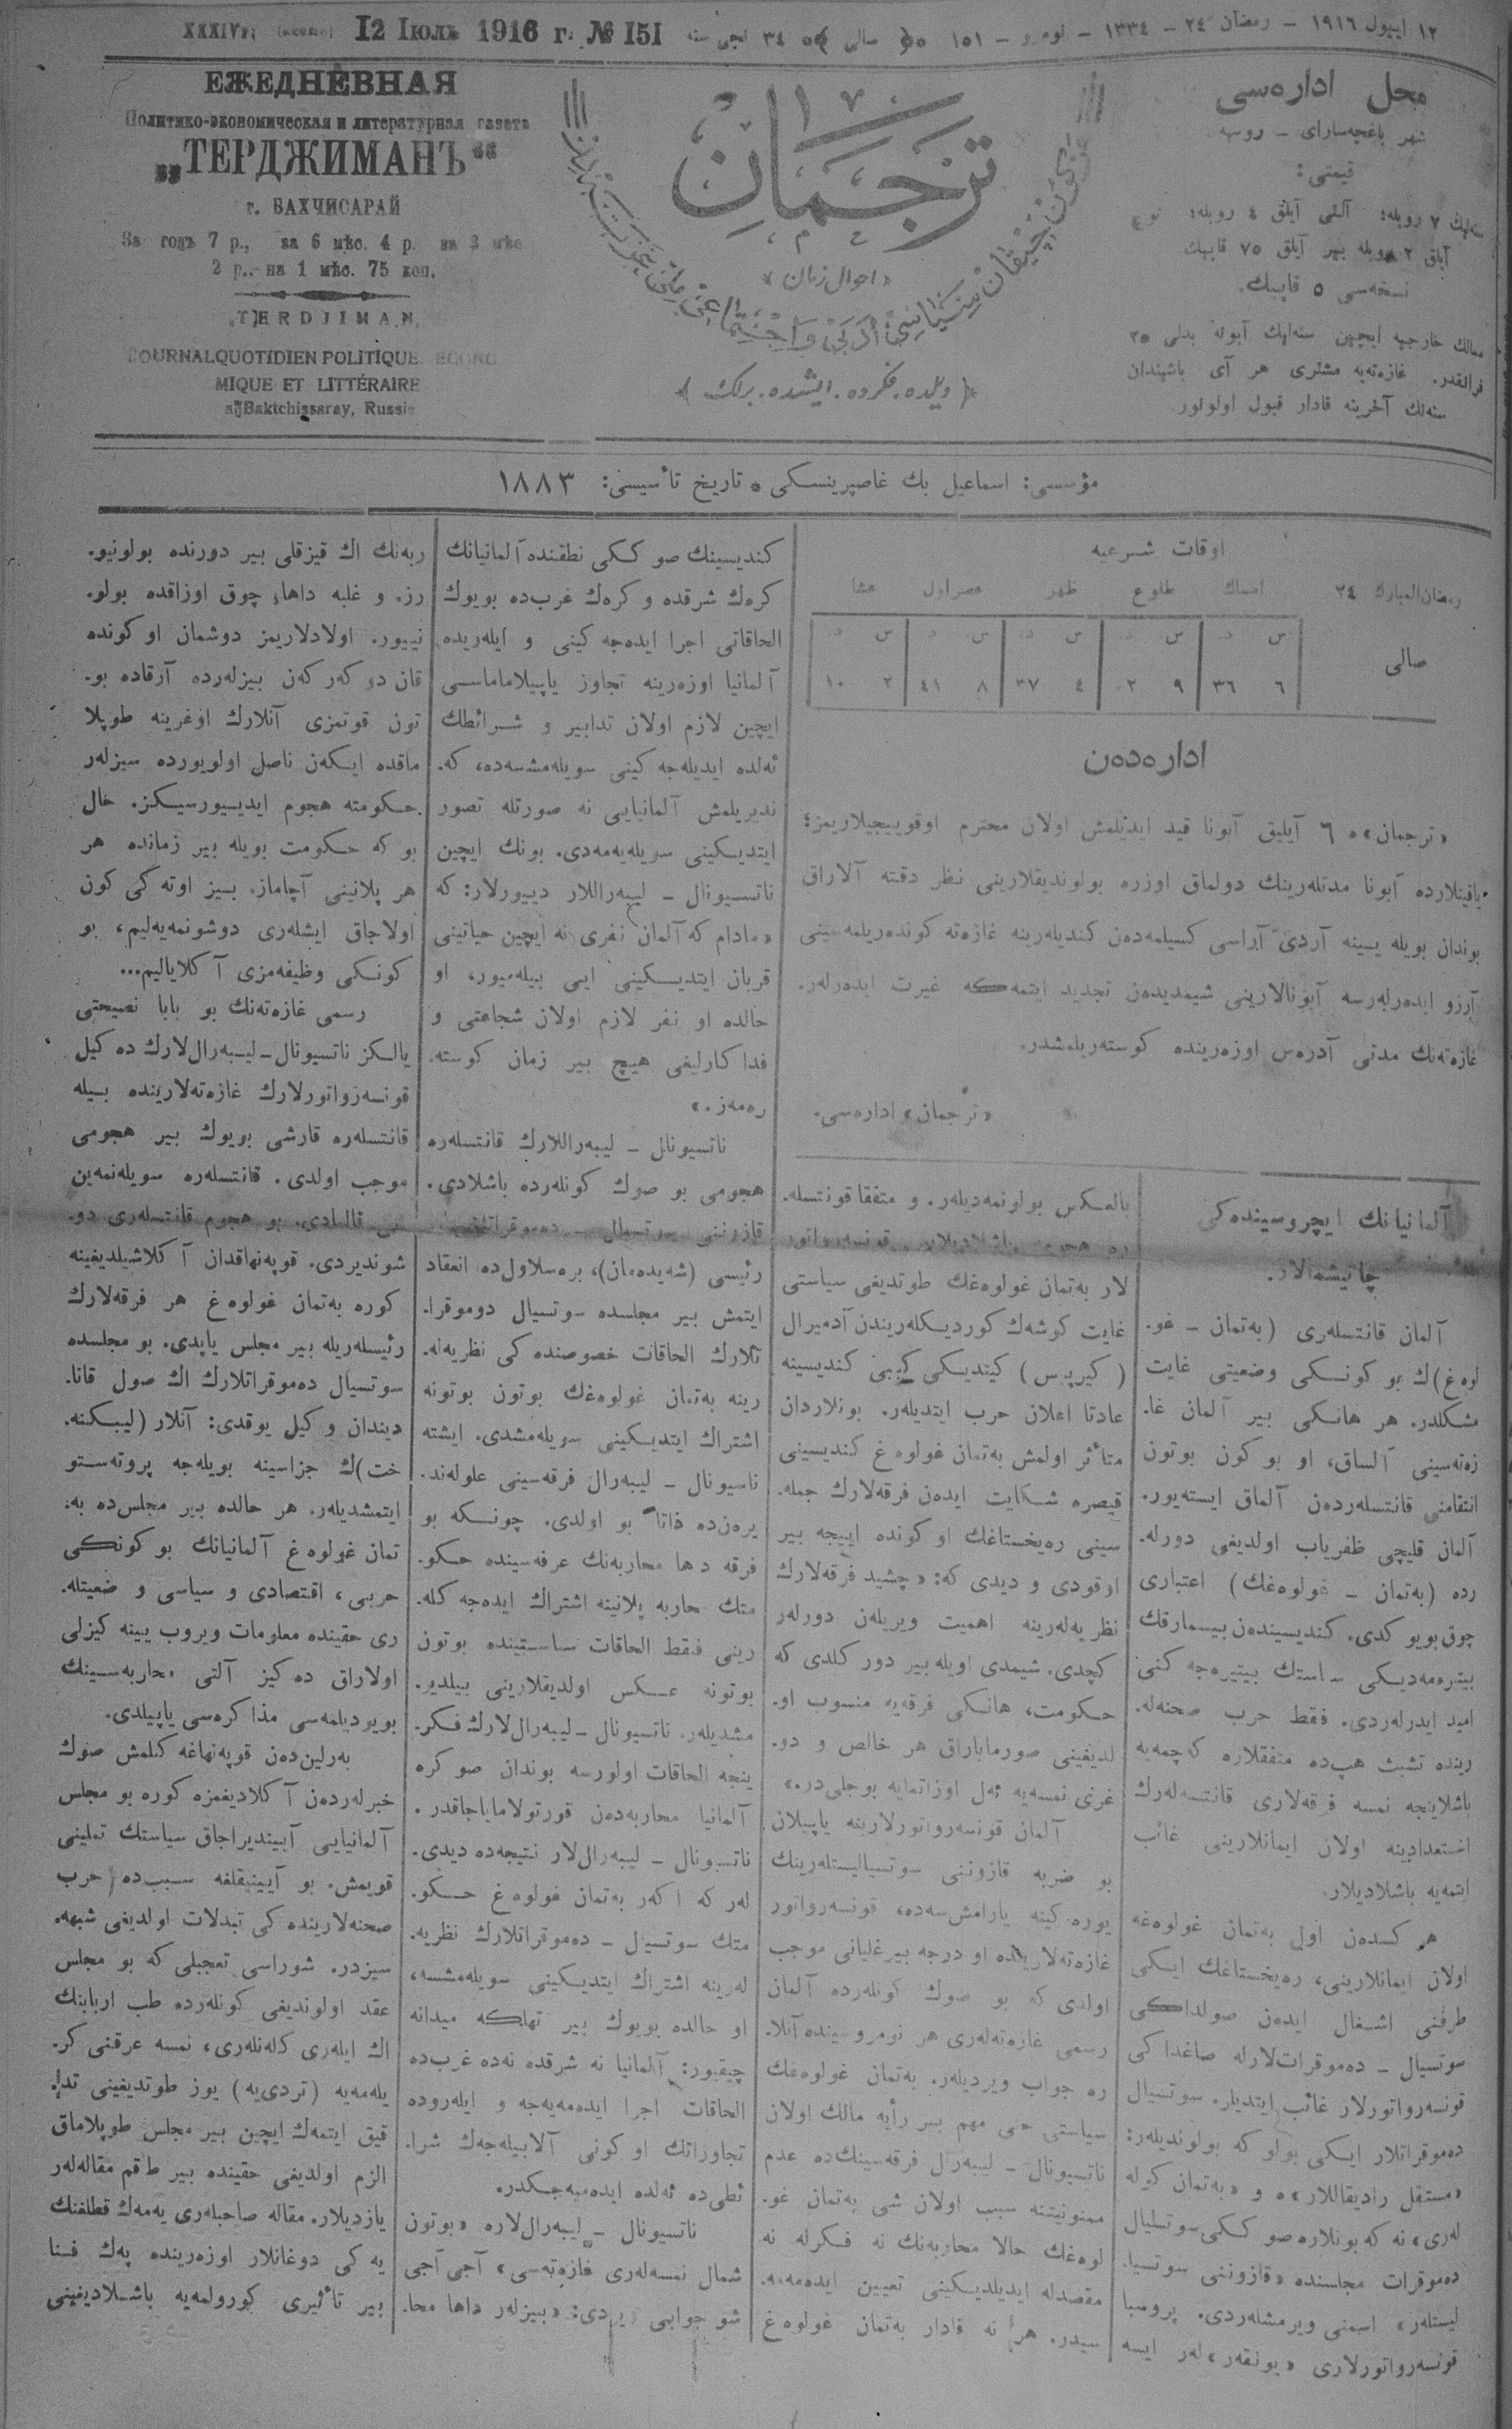 ١٢ ایيول ١٩١٦ – رمضان ٢٤ – ١٣٣٤ – نومرو – ١٥١ سالی ٣٤ نجی سنه
12 Іюль 1916 г. № 151 XXXIV
محل اداره‌سی
شهر باغچه‌سارای – روسیه
قیمتی:
سنه‌لیك ٧ روبله؛ آلتی آیلق ٤ روبله؛
آیلق ٢ روبله بیر آیلق ٧٥ قاپیك
نسخه‌سی ٥ قاپیك.
ممالك خارجیه ایچین سنه‌لیك آبونه بدلی ٢٥
فرانقدر. غازه‌ته‌یه مشتری هر آی باشندان
سنه‌نك آخرینه قادار قبول اولونور.
ترجمان
احوال زمان
دیلده، فكرده، ایشده، برلك
ЕЖЕДНЕВНАЯ
Политико-экономическая и литературная газета
„ТЕРДЖИМАНЪ“
г. БАХЧИСАРАЙ
За годъ 7 р., за 6 мѣс. 4 р. за 3 мѣс.
2 р.. на 1 мѣс. 75 коп.
„TERDJIMAN„
JOURNALQUOTIDIEN POLITIQUE. ECONO
MIQUE ET LITTÉRAIRE
Baktchissaray, Russie
مؤسسی: اسماعیل بك غاصپرینسكی * تاریخ تأسیسی: ١٨٨٣
اوقات شرعیه
رمضان المبارك ٢٤ امساك طلوع ظهر عصر اول عشا
س د س د س د س د س د
صالی ٦ ٣٦ ٩ ٠٢ ٤ ٣٧ ٨ ٤١ ٢ ١٠
اداره‌دن
«ترجمان»ه ٦ آیلیق آبونا قید ایدیلمش اولان محترم اوقوییجیلاریمز؛
یاقینلارده آبونا مدتله‌رینك دولماق اوزره بولوندیقلارینی نظر دقته آلاراق
بوندان بویله یینه آردی آراسی كسیلمه‌دن كندیله‌رینه غازه‌ته كونده‌ریلمه‌سینی
آرزو ایده‌رله‌رسه آبونالارینی شیمدیدن تجدید ایتمه‌كه غیرت ایده‌رله‌ر.
غازه‌ته‌نك مدتی آدره‌س اوزه‌رینده كوسته‌ریلمشدر.
«ترجمان» اداره‌سی.
آلمانیانك ایچروسینده‌كی
چاتیشمالار.
آلمان قانتسله‌ری (به‌تمان – غو.
لوه‌غ)ك بو كونكی وضعیتی غایت
مشكلدر. هر هانكی بیر آلمان غا.
زه‌ته‌سینی آلساق، او بو كون بوتون
انتقامنی قانتسله‌ردن آلماق ایسته‌یور.
آلمان قلیچی ظفریاب اولدیغی دورله.
رده (به‌تمان – غولوه‌غك) اعتباری
چوق بویو كدی. كندیسیندن بیسمارقك
بیتره‌مه‌دیكی سیاستك بیتیره‌جه كنی
امید ایدرله‌ردی. فقط حرب صحنه‌له.
رینده تشبث هپ‌ده متفقلاره كه‌چمه‌یه
باشلاینجه نمسه فرقه‌لاری قانتسه‌له‌رك
استعدادینه اولان ایمانلارینی غائب
ایتمه‌یه باشلادیلار.
هر كسدن اول به‌تمان غولوه‌غه
اولان ایمانلارینی، ره‌یخستاغك ایكی
طرفنی اشغال ایده‌ن صولداكی
سوتسیال – ده‌موقرات‌لارله صاغداكی
قونسه‌رواتورلار غائب ایتدیلر. سوتسیال
ده‌موقراتلار ایكی بولو كه بولوندیله‌ر:
«مستقل رادیقاللار»ه و «به‌تمان كوله
له‌ری» نه كه بونلاره صو ككی سوتسیال
ده‌موقرات مجلسنده «قازوننی سوتسیا.
لیستله‌ر» اسمنی ویرمشله‌ردی. پروسیا
قونسه‌رواتورلاری «یونقه‌ر»له‌ر ایسه
بالعكس بولونمه‌دیله‌ر. و متفقا قونتسله.
ره هجومه باشلادیلار. قونسه‌رواتور
لار به‌تمان غولوه‌غك طوتدیغی سیاستی
غایت كوشه‌ك كوردیكله‌ریندن آدمیرال
(تیرپیس) كیتدیكی كیبی كندیسینه
عادتا اعلان حرب ایتدیله‌ر. بونلاردان
متأثر اولمش به‌تمان غولوه‌غ كندیسینی
قیصره شكایت ایده‌ن فرقه‌لارك جمله.
سینی ره‌یخستاغك او كونده اییجه بیر
اوقودی و دیدی كه: «چشید فرقه‌لارك
نظریه‌له‌رینه اهمیت ویریلن دورله‌ر
كچدی. شیمدی اویله بیر دور كلدی كه
حكومت، هانكی فرقه‌یه منسوب او.
لدیغینی صورمایاراق هر خالص و دو.
غری نمسه‌یه ئه‌ل اوزاتمایه بوجلی‌در.»
آلمان قونسه‌رواتورلارینه یاپیلان
بو ضربه قازوننی سوتسیالیستله‌رینك
یوره كینه یارامش‌سه‌ده، قونسه‌رواتور
غازه‌ته‌لارینده او درجه بیر غلیانی موجب
اولدی كه بو صوك كونله‌رده آلمان
رسمی غازه‌ته‌له‌ری هر نومروسینده آنلا.
ره جواب ویردیله‌ر. به‌تمان غولوه‌غك
سیاستی حی مهم بیر رأیه مالك اولان
ناتسیونال – لیبه‌رال فرقه‌سینك‌ده عدم
ممنونیتنه سبب اولان شی به‌تمان غو.
لوه‌غك حالا محاربه‌نك نه فكرله نه
مقصدله ایدیلدیكینی تعیین ایده‌مه‌مه.
سیدر. هر نه قادار به‌تمان غولوه‌غ
كندیسینك صو ككی نطقنده آلمانیانك
كره‌ك شرقده و كره‌ك غرب‌ده بویوك
الحاقاتی اجرا ایده‌جه كینی و ایله‌ریده
آلمانیا اوزه‌رینه تجاوز یاپیلاماماسی
ایچین لازم اولان تدابیر و شرائطك
ئه‌لده ایدیله‌جه كینی سویله‌مشسه‌ده، كه.
ندیریلمش آلمانیایی نه صورتله تصور
ایتدیكینی سویله‌یه‌مه‌دی. بونك ایچین
ناتسیونال – لیبه‌راللار دییورلار: كه
«مادام كه آلمان نفری نه ایچین حیاتینی
قربان ایتدیكینی ایی بیله‌میور، او
حالده او نفر لازم اولان شجاعتی و
فداكارلیغی هیچ بیر زمان كوسته.
ره‌مه‌ز.»
ناتسیونال – لیبه‌راللارك قانتسله‌ره
هجومی بو صوك كونله‌رده باشلادی.
قازوننی سوتسیال – ده‌موقراتلرك
رئیسی (شه‌یده‌مان)، بره‌سلاول‌ده انعقاد
ایتمش بیر مجلسده سوتسیال دوموقرا.
تلارك الحاقات خصوصنده كی نظریه‌له.
رینه به‌تمان غولوه‌غك بوتون بوتونه
اشتراك ایتدیكینی سویله‌مشدی. ایشته
ناسیونال – لیبه‌رال فرقه‌سینی علوله‌ند.
یره‌ن‌ده ذاتا بو اولدی. چونكه بو
فرقه دها محاربه‌نك عرفه‌سینده حكو.
متك محاربه پلانینه اشتراك ایده‌جه كله.
رینی فقط الحاقات سیاستینده بوتون
بوتونه عكس اولدیقلارینی بیلدیر.
مشدیله‌ر. ناتسیونال – لیبه‌رال‌لارك فكر.
ینجه الحاقات اولورسه بوندان صو كره
آلمانیا محاربه‌دن قورتولامایاجاقدر.
ناتسیونال – لیبه‌رال‌لار نتیجه‌ده دیدی.
له‌ر كه اكه‌ر به‌تمان غولوه‌غ حكو.
متك سوتسیال – ده‌موقراتلارك نظریه.
له‌رینه اشتراك ایتدیكینی سویله‌مشسه،
او حالده بویوك بیر تهلكه میدانه
چیقیور: آلمانیا نه شرقده نه‌ده غرب‌ده
الحاقات اجرا ایده‌مه‌یه‌جه و ایله‌روده
تجاوزاتك او كونی آلابیله‌جه‌ك شرا.
ئطی‌ده ئه‌لده ایده‌میه‌جكدر.
ناتسیونال – لیبه‌رال‌لاره «بوتون
شمال نمسه‌له‌ری غازه‌ته‌سی» آجی آجی
شو جوابی ویردی: «بیزله‌ر داها محا.
ربه‌نك اك قیزقلی بیر دورنده بولونیو.
رز. و غلبه داها، چوق اوزاقده بولو.
نییور. اولادلاریمز دوشمان او كونده
قان دو كه‌ركه‌ن بیزله‌رده آرقاده بو.
تون قوتمزی آنلارك اوغرینه طوپلا
ماقده ایكه‌ن ناصل اولویورده سیزله‌ر
حكومته هجوم ایدییورسیكز. حال
بو كه حكومت بویله بیر زمانده هر
هر پلانینی آچاماز. بیز اوته كی كون
اولاجاق ایشله‌ری دوشونمه‌یه‌لیم، بو
كونكی وظیفه‌مزی آ كلایالیم...
رسمی غازه‌ته‌نك بو بابا نصیحتی
یالكز ناتسیونال – لیبه‌رال‌لارك ده كیل
قونسه‌رواتورلارك غازه‌ته‌لارینده بیله
قانتسله‌ره قارشی بویوك بیر هجومی
موجب اولدی. قانتسله‌ره سویله‌نمه‌ین
قالمادی. بو هجوم قانتسله‌ری دو.
شوندیردی. قوپه‌نهاقدان آ كلاشیلدیغینه
كوره به‌تمان غولوه‌غ هر فرقه‌لارك
رئیسله‌ریله بیر مجلس یاپدی. بو مجلسده
سوتسیال ده‌موقراتلارك اك صول قانا.
دیندان وكیل یوقدی: آنلار (لیبكنه.
خت)ك جزاسینه بویله‌جه پروته‌ستو
ایتمشدیله‌ر. هر حالده بیر مجلس‌ده به.
تمان غولوه‌غ آلمانیانك بو كونكی
حربی، اقتصادی و سیاسی و ضعیتله.
ری حقینده معلومات ویروب یینه كیزلی
اولاراق ده‌كیز آلتی محاربه‌سینك
بویودیلمه‌سی مذاكره‌سی یاپیلدی.
به‌رلین‌دن قوپه‌نهاغه كلمش صوك
خبرله‌ردن آ كلادیغمزه كوره بو مجلس
آلمانیایی آییندیراجاق سیاستك تملینی
قویمش. بو آیینیقلغه سبب‌ده حرب
صحنه‌لارینده كی تبدلات اولدیغی شبهه.
سیزدر. شوراسی تعجبلی كه بو مجلس
عقد اولوندیغی كونله‌رده طب اربابنك
اك ایله‌ری كله‌نله‌ری، نمسه عرقنی كر.
یله‌مه‌یه (تردی‌یه) یوز طوتدیغینی تدا.
قیق ایتمه‌ك ایچین بیر مجلس طوپلاماق
الزم اولدیغی حقینده بیر طاقم مقاله‌له‌ر
یازدیلار. مقاله صاحبله‌ری یه‌مه‌ك قطلغنك
یه كی دوغانلار اوزه‌رینده په‌ك فنا
بیر تأثیری كورولمه‌یه باشلادیغینی